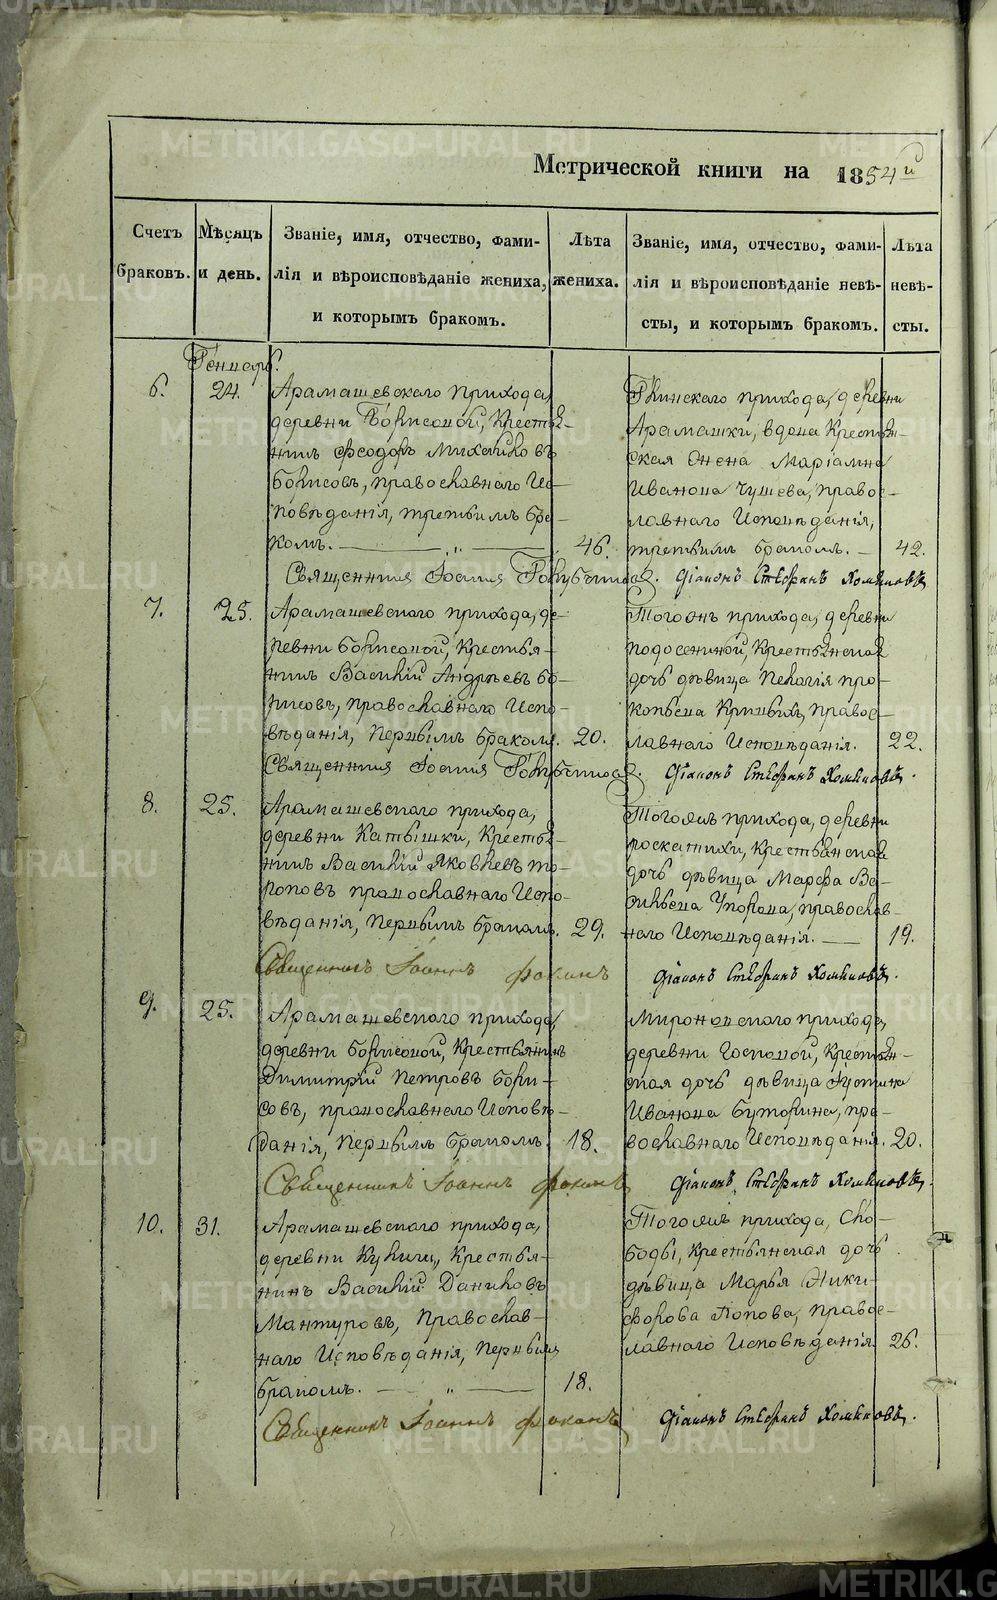 METRIKI.GASO-URAL.RU
Метрической книги на 1854й
Счетъ браковъ.
Мѣсяцъ и день.
Званіе, имя, отчество, фами-
лія и вѣроисповѣданіе жениха,
и которымъ бракомъ.
Лѣта жениха.
Званіе, имя, отчество, фами-
лія и вѣроисповѣданіе невѣ-
сты, и которымъ бракомъ.
Лѣта невѣ-
сты.
Генварь.
6.
24.
Арамашевскаго прихода,
деревни Борисовой, Крестья-
нинъ Феодоръ Михайловъ
Борисовъ, православнаго Ис-
повѣданія, третьимъ бра-
комъ.
46.
прихода, деревни
Арамашки, вдова Крестьян-
ская Жена Маріамна
Иванова Чушева, право-
славнаго Исповѣданія,
третьимъ бракомъ.
42.
Священникъ Іоаннъ
Діаконъ Стефанъ Хомяковъ.
7.
25.
Арамашевскаго прихода, де-
ревни Борисовой, Крестья-
нинъ Василій Андреевъ Бо-
рисовъ, православнаго Испо-
вѣданія, Первымъ бракомъ.
20.
Тогожъ прихода, деревни
Подосениной, Крестьянская
дочь дѣвица Пелагія Про-
копьева Кривыхъ, Правос-
лавнаго Исповѣданія.
22.
Священникъ Іоаннъ
Діаконъ Стефанъ Хомяковъ.
8.
25.
Арамашевскаго прихода,
деревни Катышки, Крестья-
нинъ Василій Яковлевъ То-
роповъ православнаго Испо-
вѣданія, Первымъ бракомъ.
29.
Тогожъ прихода, деревни
Роскатихи, Крестьянская
дочь дѣвица Марфа Ва-
сильева Упорова, православ-
наго Исповѣданія.
19.
Священникъ Іоаннъ Фокинъ
Діаконъ Стефанъ Хомяковъ.
9.
25.
Арамашевскаго прихода,
деревни Борисовой, Крестьянинъ
Димитрій Петровъ Бори-
совъ, православнаго Исповѣ-
данія, Первымъ бракомъ.
18.
Мироновскаго прихода,
деревни Крестьян-
ская дочь дѣвица Іустина
Иванова Буторина, пра-
вославнаго Исповѣданія.
20.
Священникъ Іоаннъ Фокинъ
Діаконъ Стефанъ Хомяковъ.
10.
31.
Арамашевскаго прихода,
деревни Кулиги, Крестья-
нинъ Василій Даниловъ
Мантуровъ, Православ-
наго Исповѣданія, Первымъ
бракомъ.
18.
Тогожъ прихода, Сло-
боды, Крестьянская дочь
дѣвица Марья Ники-
форова Попова, Правос-
лавнаго Исповѣданія.
26.
Священникъ Іоаннъ Фокинъ
Діаконъ Стефанъ Хомяковъ.